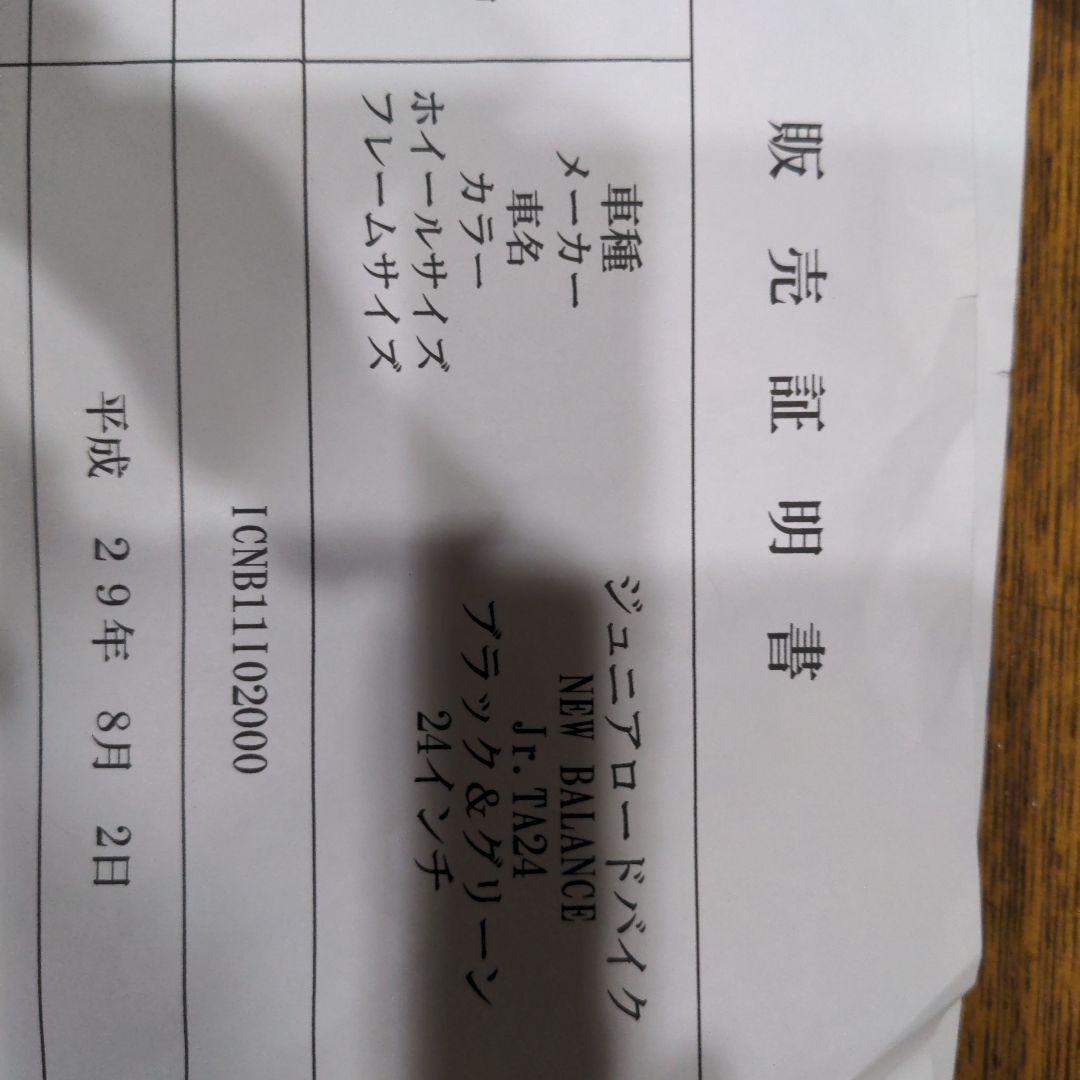 販売証明書
車種 ジュニアロードバイク
メーカー NEW BALANCE
車名 Jr.TA24
カラー ブラック&グリーン
ホイールサイズ 24インチ
フレームサイズ
ICNB11I02000
平成 29年 8月 2日